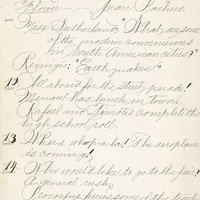 Flower --- Juan Pachuc
- Miss Sutherland: "What are some
of the modern conveniences
in South American cities?"
Remigio: "Earthquakes."
12 All aboard for the street parade!
Menaul has lunch in town.
Rafael and Tomás complete the
high school roll.
13 Where what-a-ta! The aeroplane
is coming!
14 Who would like to go to the fair?
A general rush.
some of the